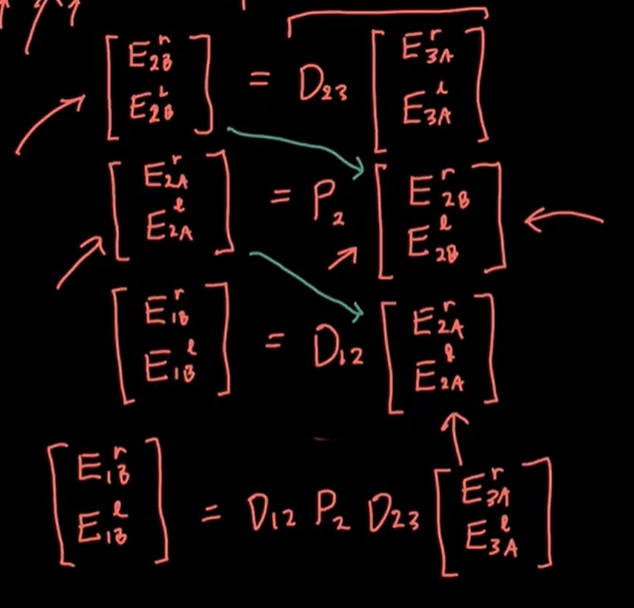 [E₂Bʳ E₂Bˡ] = D₂₃ [E₃Aʳ E₃Aˡ]
[E₂Aʳ E₂Aˡ] = P₂ [E₂Bʳ E₂Bˡ]
[E₁Bʳ E₁Bˡ] = D₁₂ [E₂Aʳ E₂Aˡ]
[E₁Bʳ E₁Bˡ] = D₁₂ P₂ D₂₃ [E₃Aʳ E₃Aˡ]